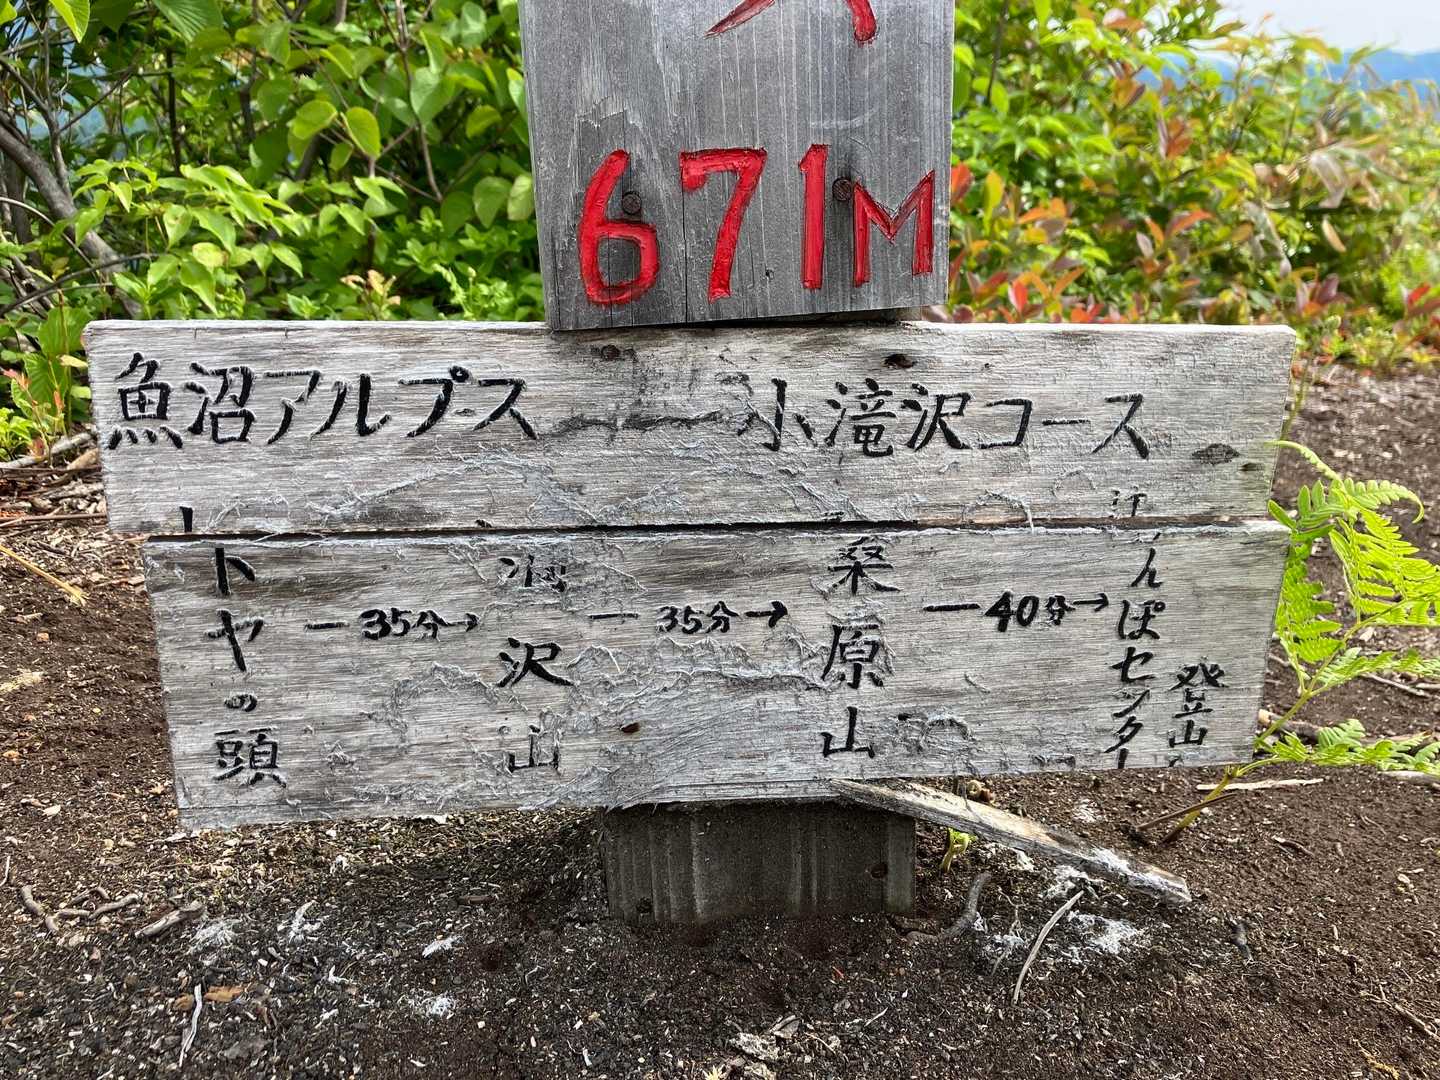 671M
魚沼アルプス 小滝沢コース
トヤの頭 —35分→ 沢山 —35分→ 桑原山 —40分→ んぽセンター 登山